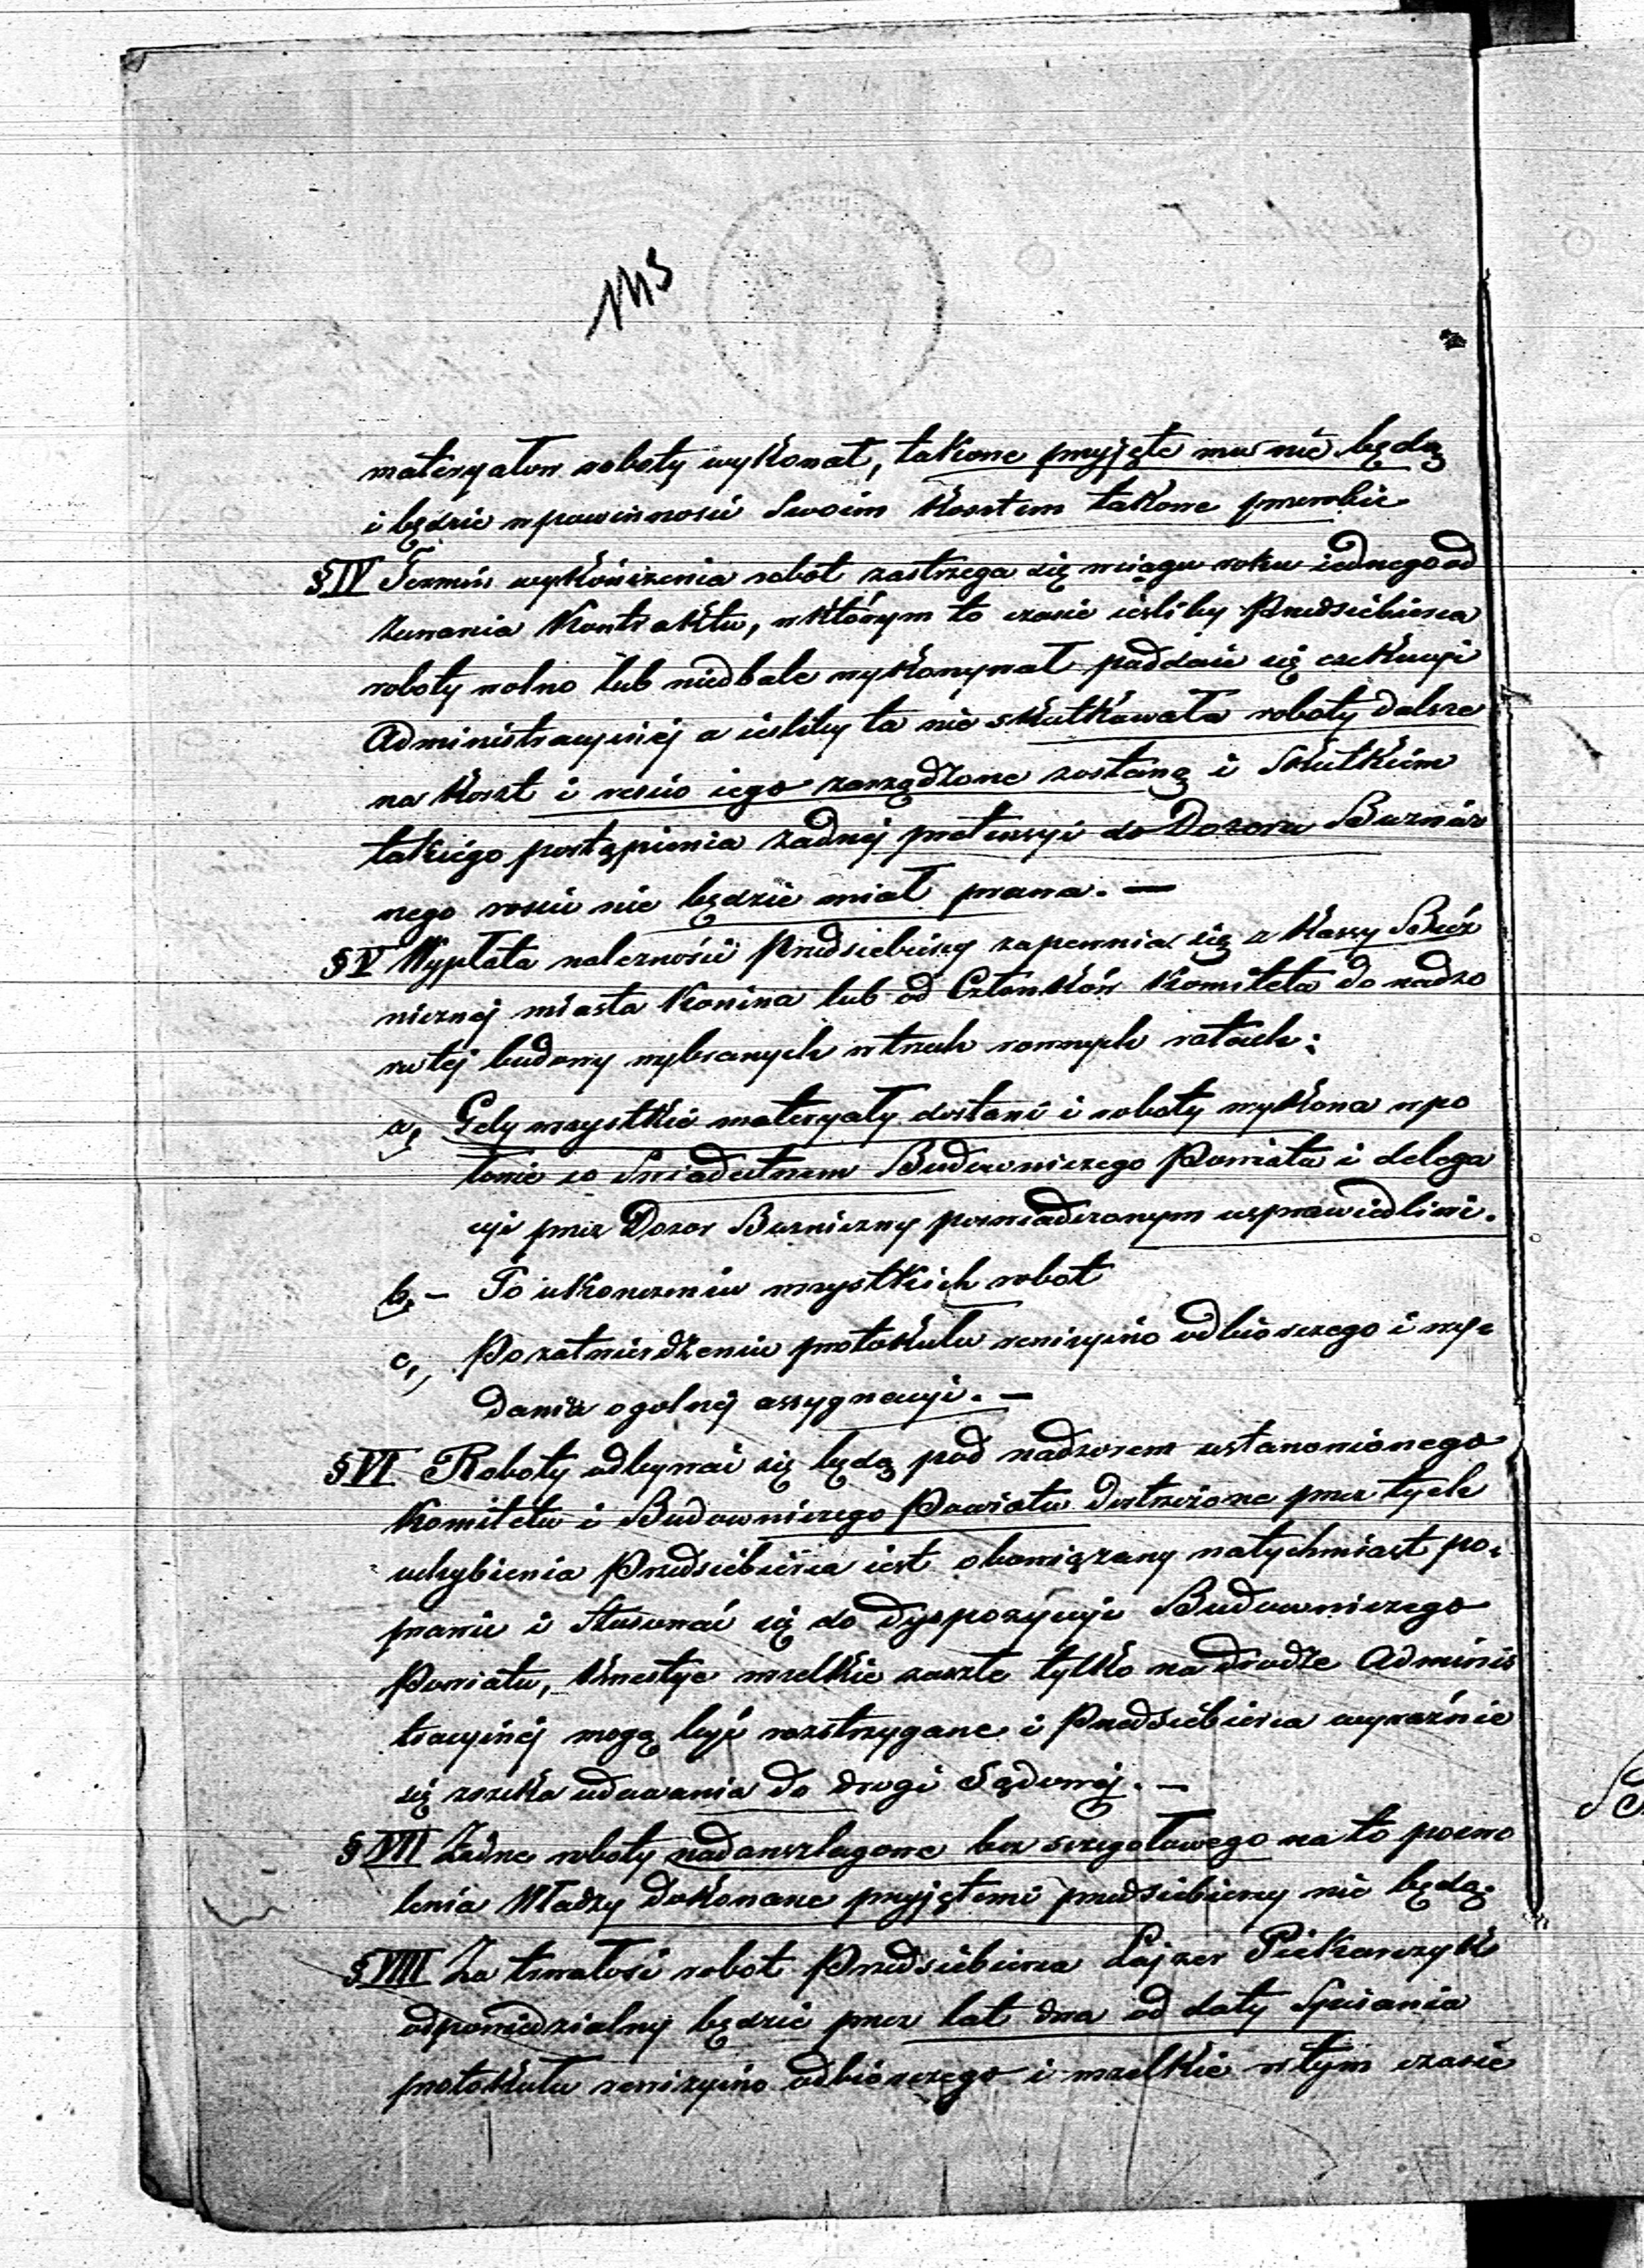 1113
materyałow roboty wykonał, takowe przyjęte mu nie będą
i będzie w powinności Swoim Kosztem takowe przerobić
§ IV Termin wykończenia robot zastrzega się w ciągu roku iednego od
Zawarcia Kontraktu, w którym to czasie ieśliby Przedsiebierca
roboty wolno lub niedbale wykonywał poddaie się exekucyi
Administracyinéj a ieśliby ta nie skutkowała roboty dalsze
na Koszt i resico iego zarządzone zostaną i Skutkiem
takiego postąpienia żadnéj pretensyi do Dozoru Bożnicz
nego rościć nie będzie miał prawa. —
§ V Wypłata należności Przedsiebiercy zapewnia się z Kassy Boż
nicznéj miasta Konina lub od Członków Komitetu do nadzo
ru téj budowy wybranych w trzech rownych ratach:
a, Gdy wszystkie materyały dostawi i roboty wykona w po
łowie co Swiadectwem Budowniczego Powiatu i delega
cyi przez Dozor Bożniczny poswiadczonym usprawiedliwi.
b, — Po ukonczeniu wszystkich robot
c, Po zatwierdzeniu protokułu rewizyino odbiorczego i wy=
dania ogolnéj assygnacyi. —
§ VI Roboty odbywać się będą pod nadzorem ustanowionego
Komitetu i Budowniczego Powiatu dostrzeżone przez tych
uchybienia Przedsiebierca iest obowiązany natychmiast po=
prawić i Stosować się do dyspozycyi Budowniczego
Powiatu, Kwestye wszelkie zaszłe tylko na drodze Adminis
tracyinéj mogą być rozstrzygane i Przedsiebierca wyraźnie
się zrzeka udawania do drogi Sądowéj. —
§ VII Żadne roboty nadanszlagowe bez szczegołowego na to pozwo
lenia Władzy dokonane przyjętemi przedsiebiercy nie będą.
§ VIII Za trwałość robot Przedsiebierca Lajzer Piekarczyk
odpowiedzialny będzie przez lat dwa od daty Spisania
protokułu rewizyino odbiorczego i wszelkie w tym czasie